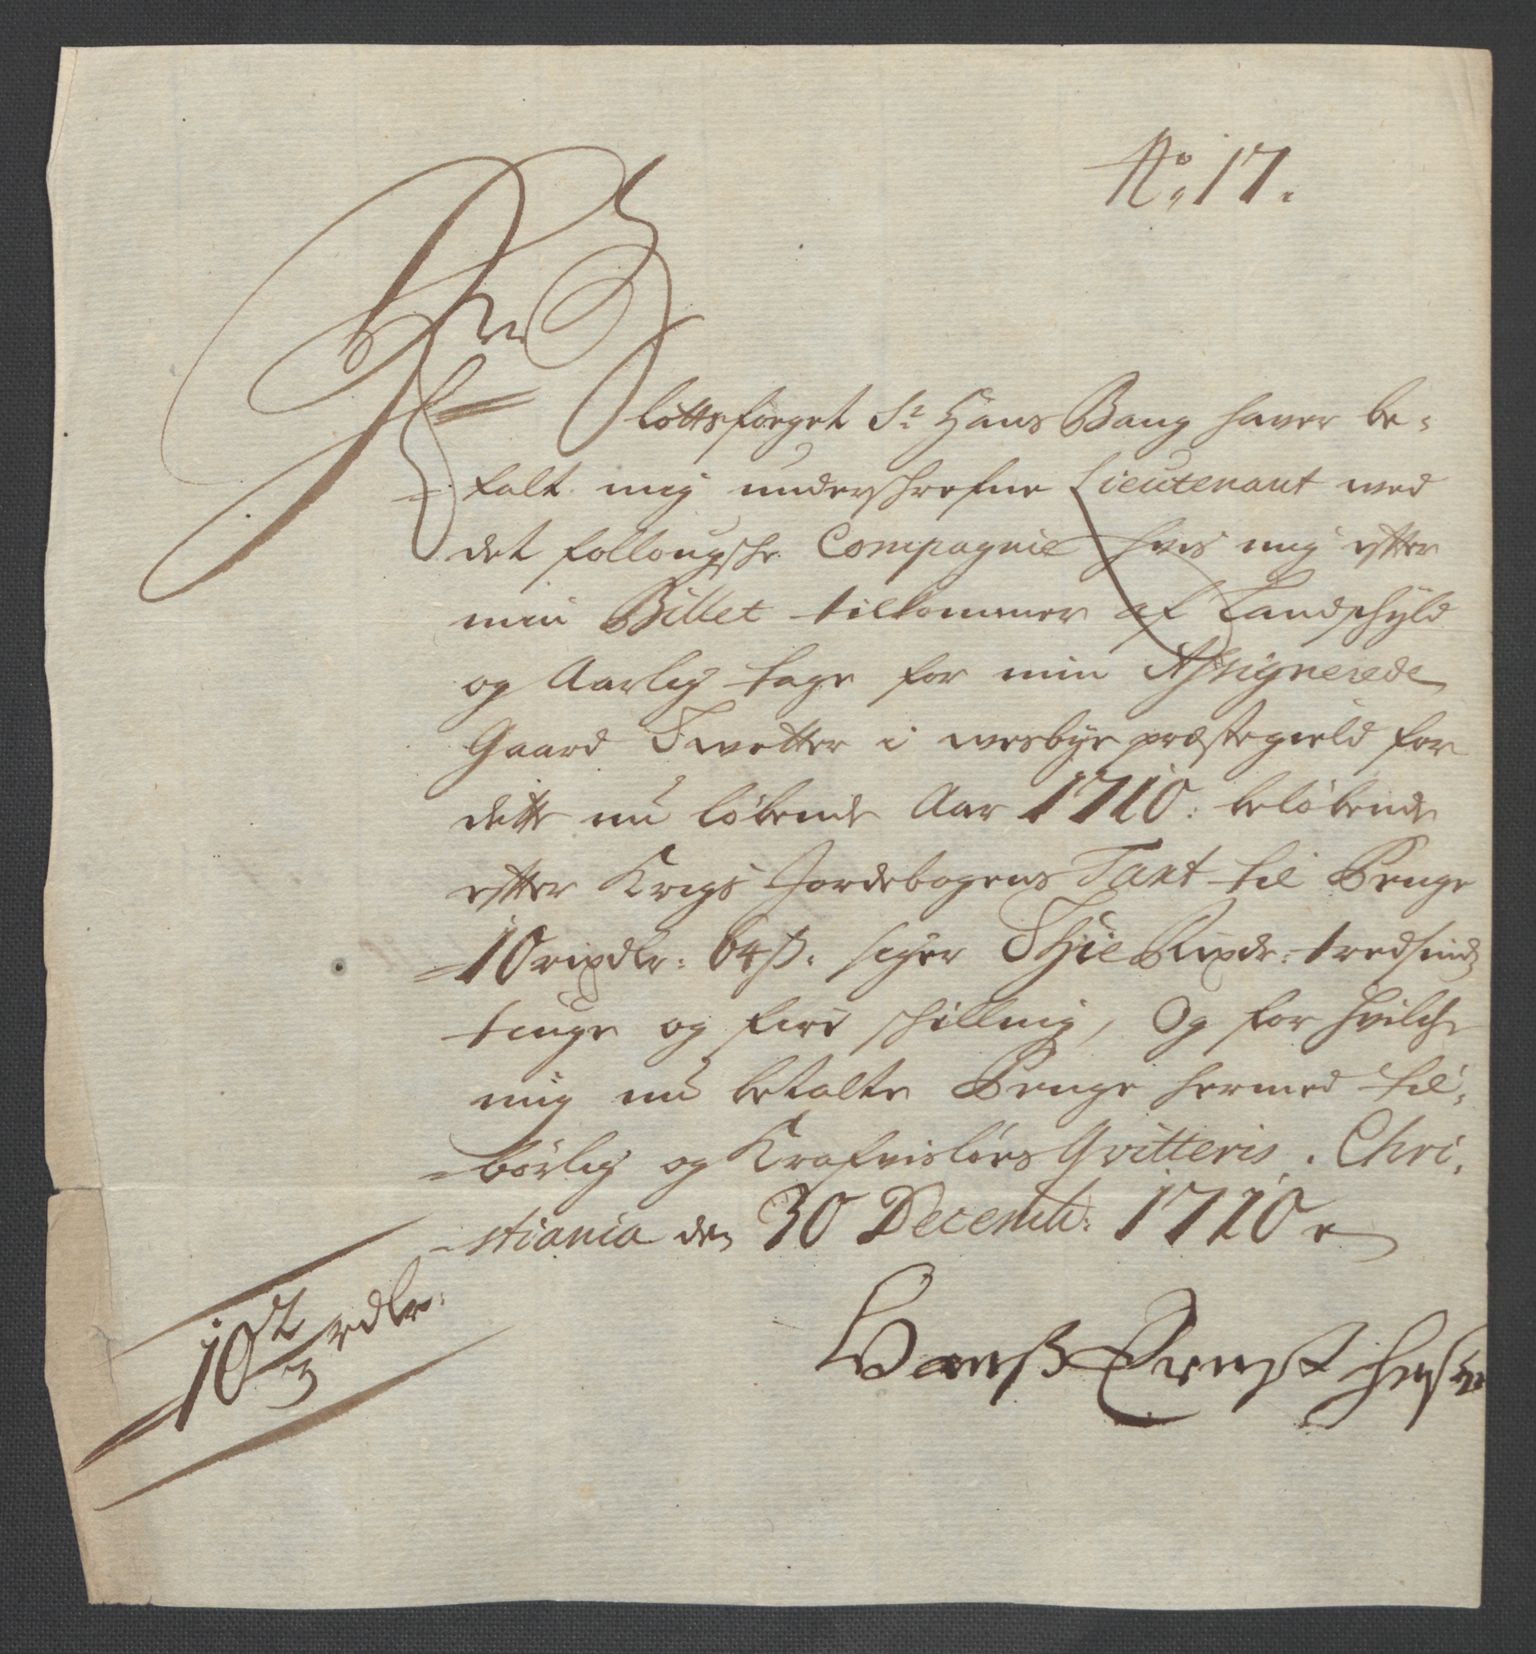 No. 17.
Slottsforget Sr Hans Bang haver be-
-talt mig underschrefne Lieutenant med
det follougsche Compagnie hvis mig efter
min Billet tilkommer af Landschyld
og Aarlig tage for min Assignerede
Gaard Twetter i wesbye præstegield for
dette nu løbende Aar 1710: beløbende
efter Krigs Jordebogens Taxt til Penge
-10 rixdlr: 64 ß. siger Thie Rixdr: tredsinds
tiuge og fire schilling, Og for hvilche
mig nu betalte Penge hermed til-
-børlig og Krafvisløes Qvitteris. Chri-
-stiania den 30 Decemb: 1710
Hanß Ernst
10 2/3 rdlr: